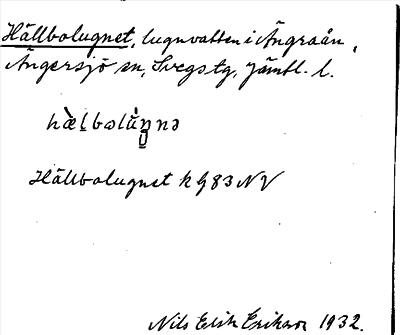 Hällbolugnet, lugnvatten i Ängraån,
Ängersjö sn, Svegs tg, Jämtl. l.
Hällbolugnet k h83 NV
Nils Erik Eriksson 1932.